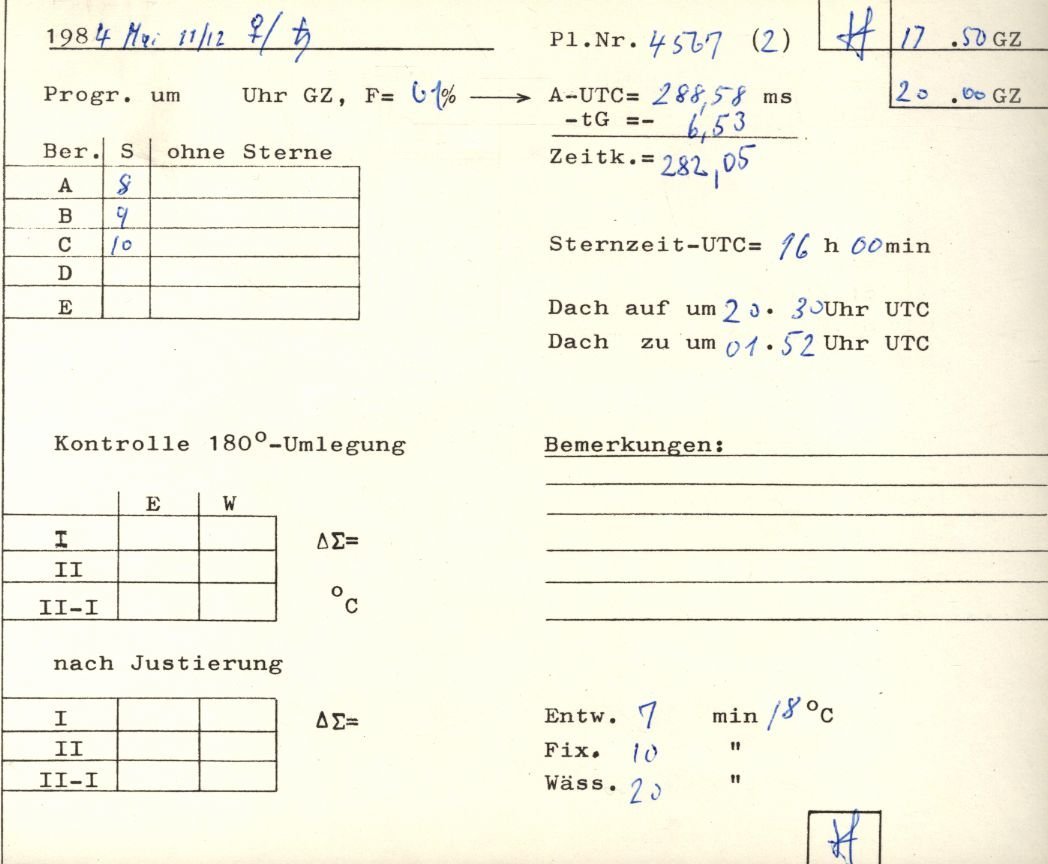 1984 Mai 11/12 ♀/♄
Pl.Nr. 4567 (2)
17 .50 GZ
Progr. um Uhr GZ, F= 61% → A-UTC= 288,58 ms
20 .00 GZ
-tG =- 6,53
Zeitk.= 282,05
Ber. S ohne Sterne
A 8
B 9
C 10
D
E
Sternzeit-UTC= 16 h 00min
Dach auf um 20. 30Uhr UTC
Dach zu um 01.52 Uhr UTC
Kontrolle 180°-Umlegung
E W
I ΔΣ=
II
II-I °C
Bemerkungen:
nach Justierung
I ΔΣ=
II
II-I
Entw. 7 min 18°C
Fix. 10 "
Wäss. 20 "